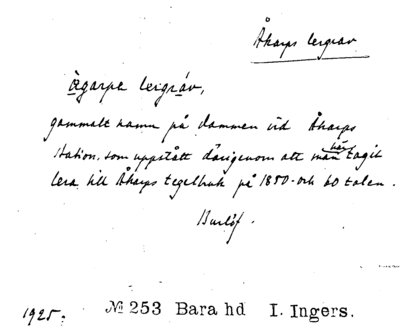 Åkarps lergrav
Ågarpe lergrav,
gammalt namn på dammen vid Åkarps
station, som uppstått därigenom att man här tagit
lera till Åkarps tegelbruk på 1850- och 60 talen.
Burlöf.
1925. № 253 Bara hd I. Ingers.